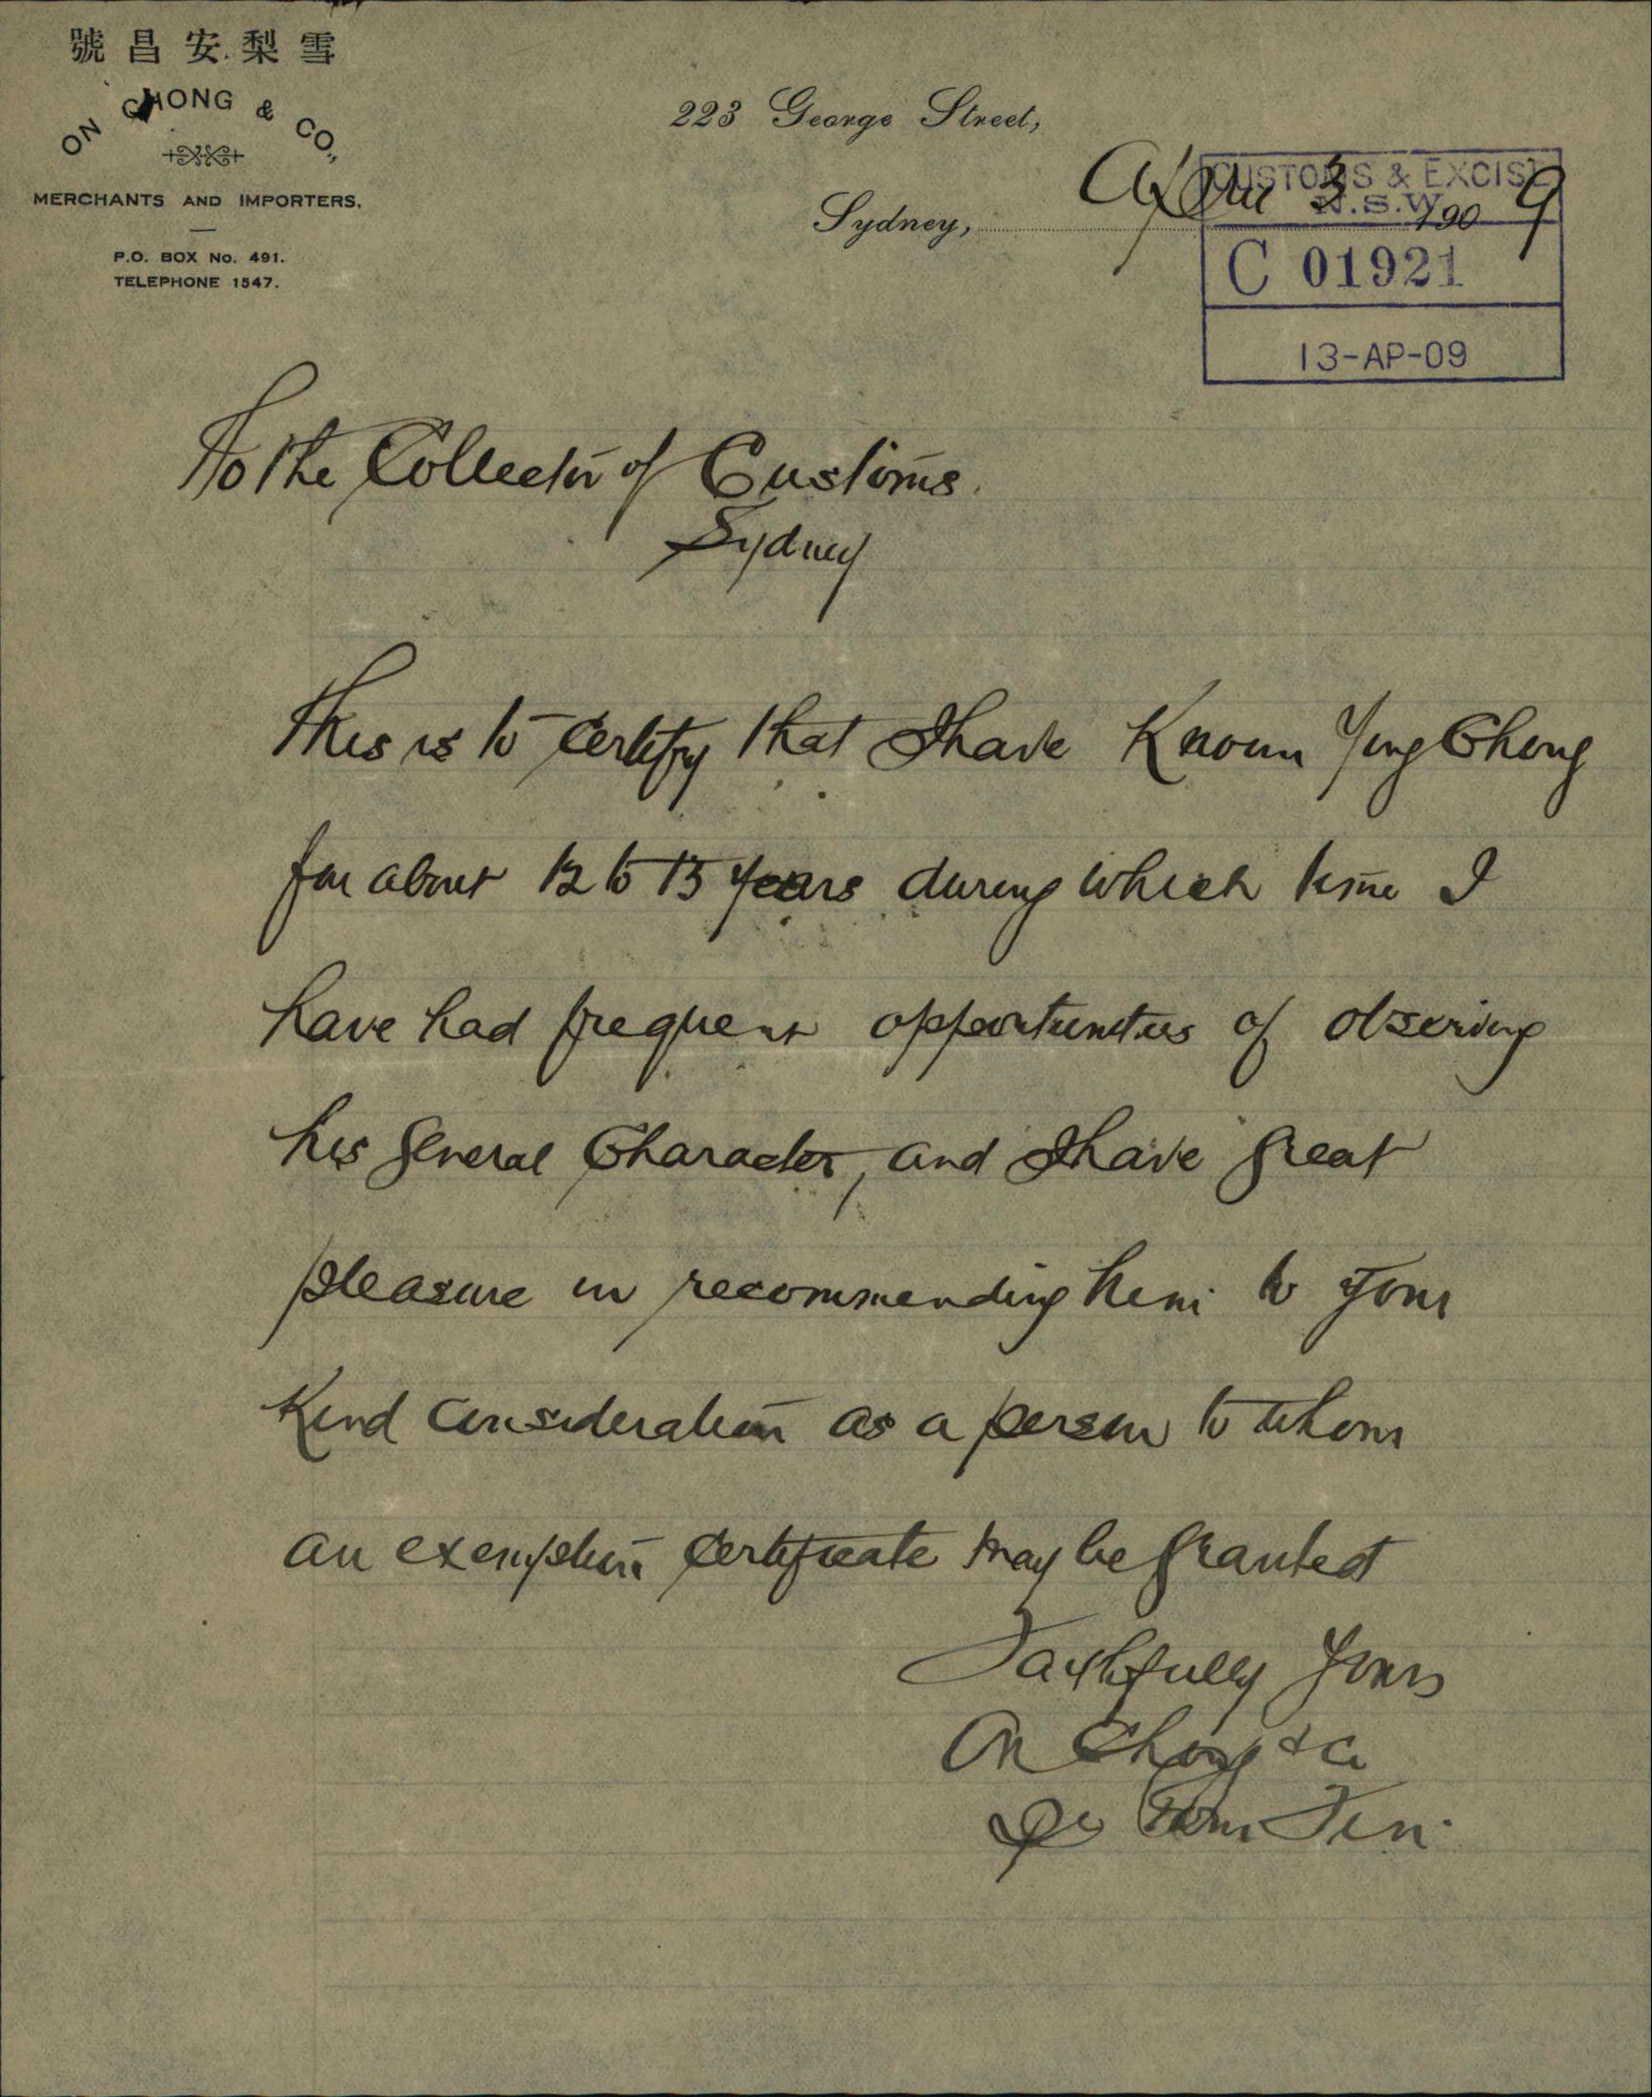 號昌安梨雪
ON CHONG & CO.,
MERCHANTS AND IMPORTERS.
P.O. BOX No. 491.
TELEPHONE 1547.
223 George Street,
Sydney, April 3 1909
CUSTOMS & EXCISE
N.S.W.
C 01921
13-AP-09
To the Collector of Customs.
Sydney
This is to certify that I have Known Ying Chong
for about 12 to 13 years during which time I
have had frequent opportunities of observing
his General Character, and I have great
pleasure in recommending him to your
Kind Consideration as a person to whom
an exemption Certificate may be granted
Faithfully Yours
On Chong & Co